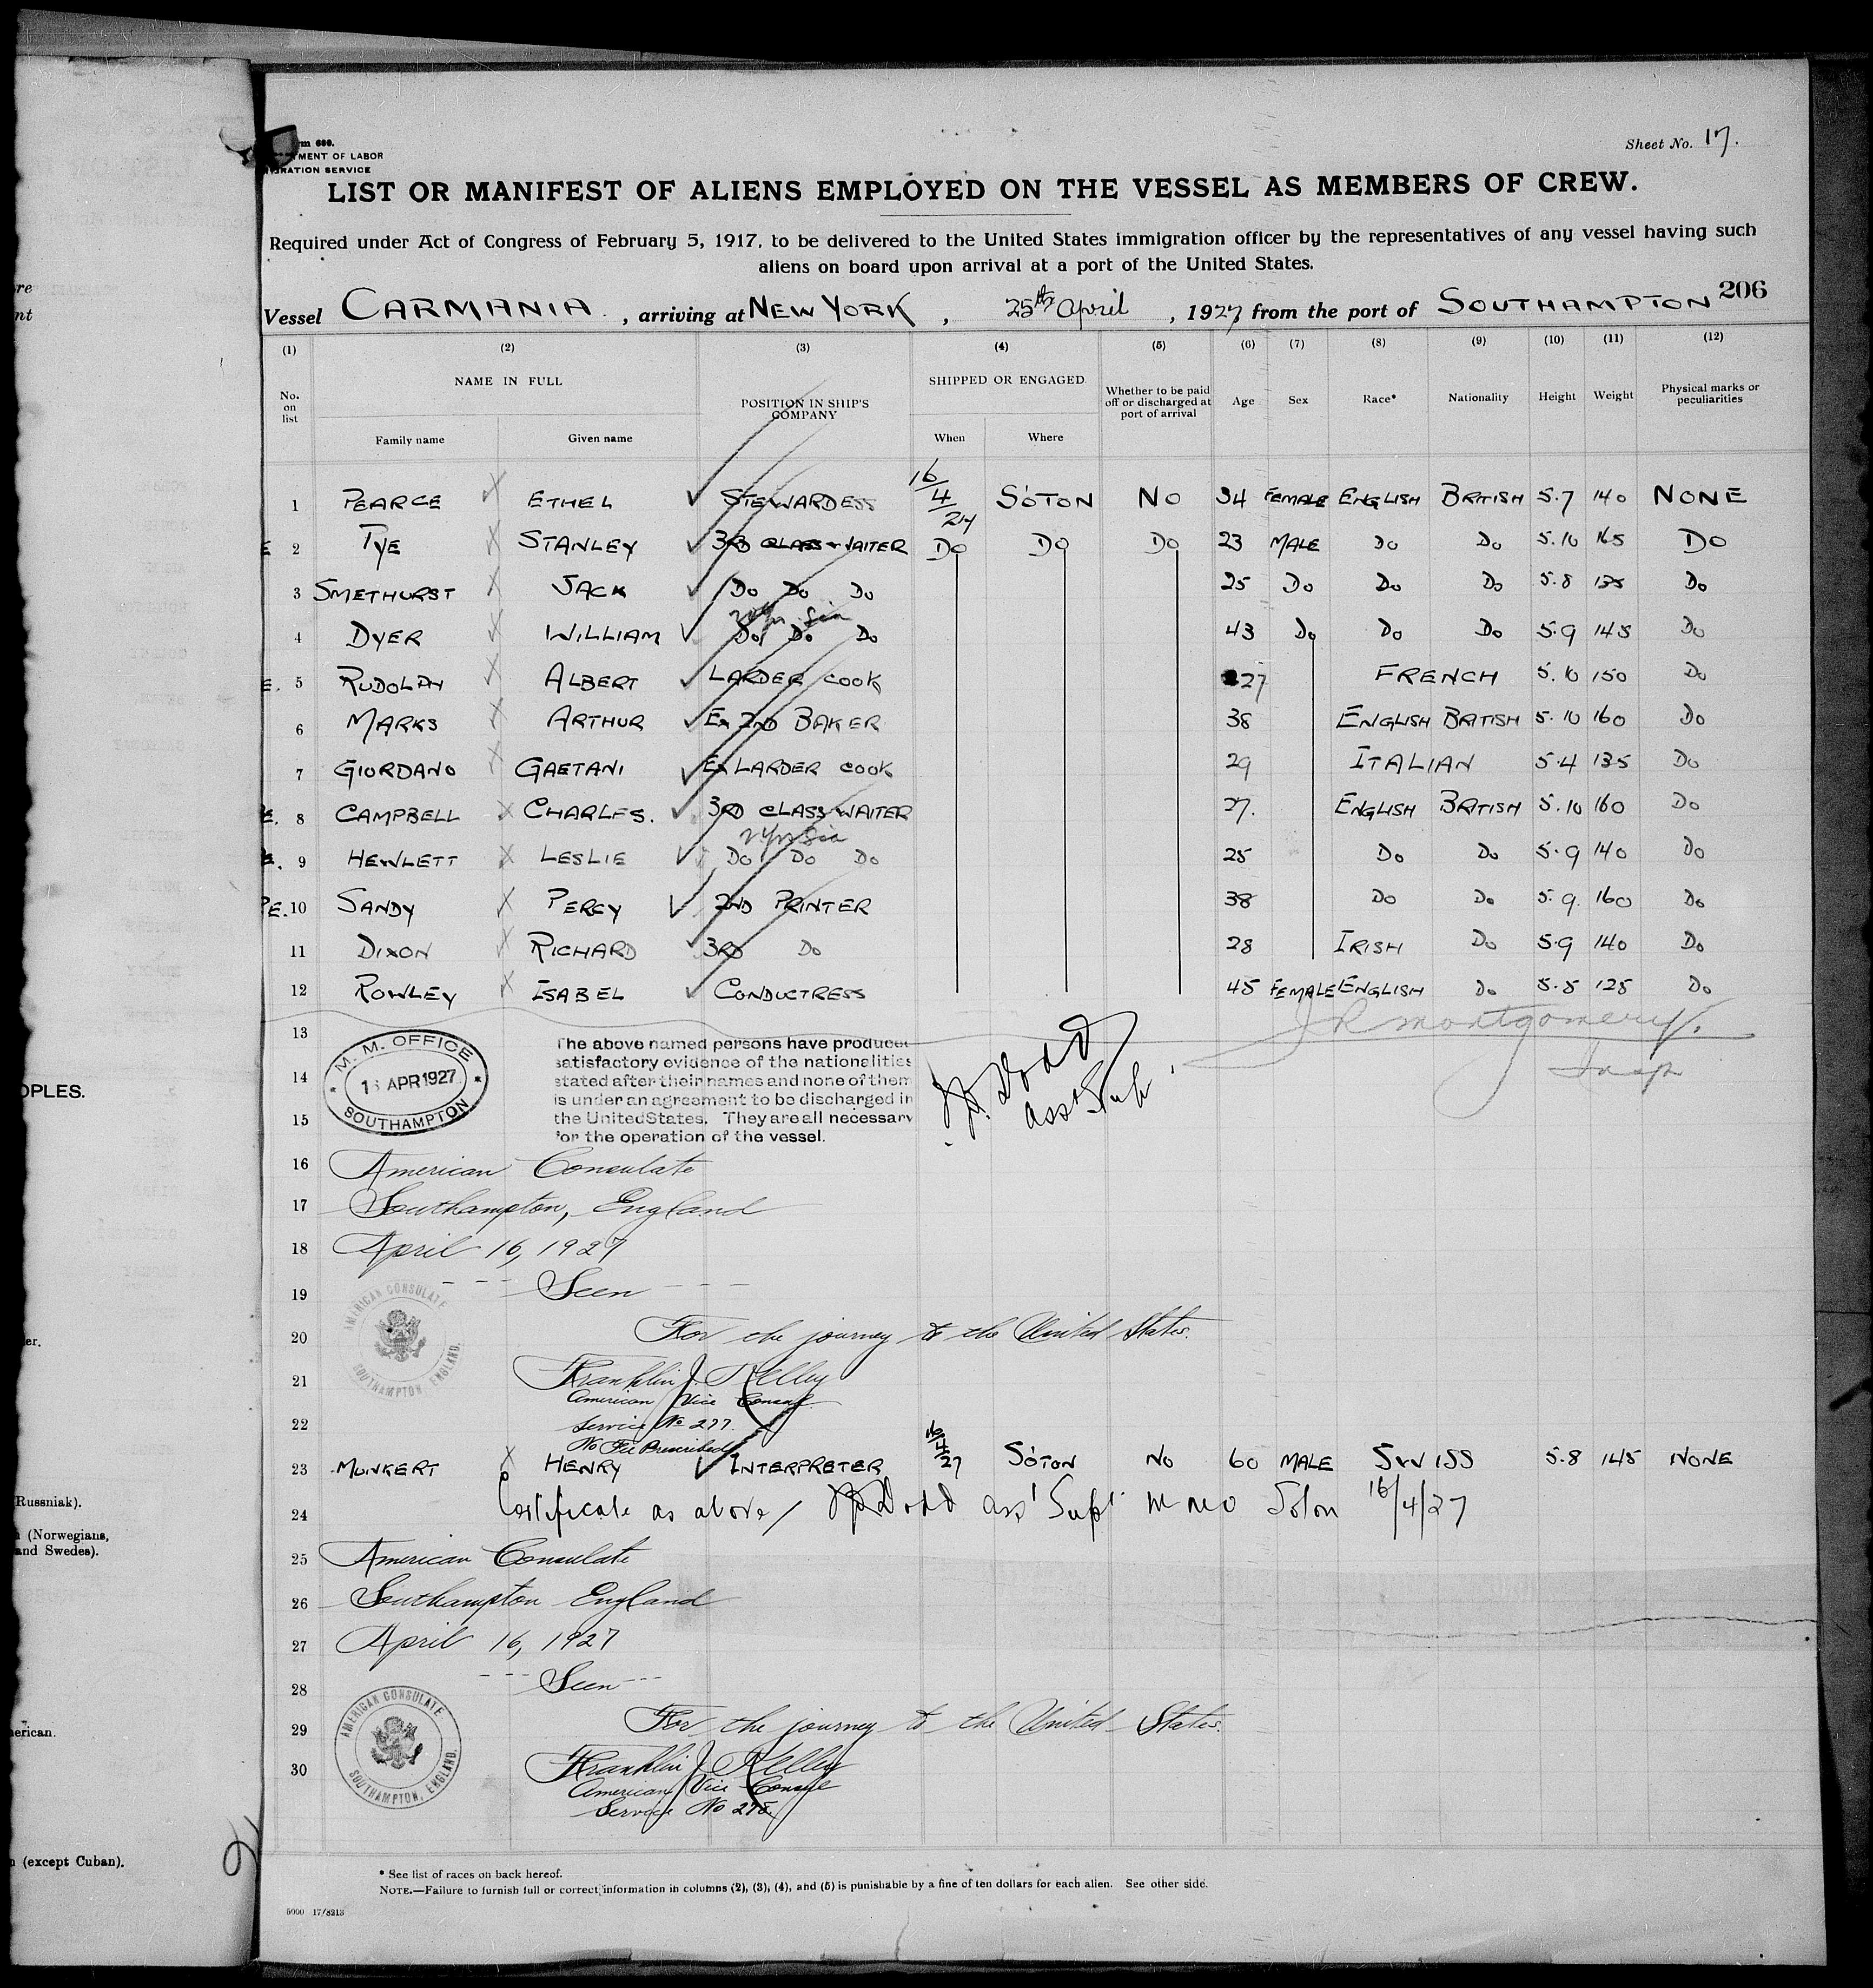 re
nt
OPLES.
er.
Russniak).
(Norwegians,
and Swedes).
erican.
(except Cuban).
rm 680.
TMENT OF LABOR
RATION SERVICE
Sheet No. 17.
LIST OR MANIFEST OF ALIENS EMPLOYED ON THE VESSEL AS MEMBERS OF CREW.
Required under Act of Congress of February 5, 1917, to be delivered to the United States immigration officer by the representatives of any vessel having such
aliens on board upon arrival at a port of the United States.
206
Vessel CARMANIA , arriving at NEW YORK , 25th April , 1927, from the port of SOUTHAMPTON
(1) (2) (3) (4) (5) (6) (7) (8) (9) (10) (11) (12)
No. on list NAME IN FULL POSITION IN SHIP'S COMPANY SHIPPED OR ENGAGED Whether to be paid off or discharged at port of arrival Age Sex Race* Nationality Height Weight Physical marks or peculiarities
Family name Given name When Where
1 PEARCE ETHEL STEWARDESS 16/4/27 S'OTON NO 34 FEMALE ENGLISH BRITISH 5.7 140 NONE
E 2 TYE STANLEY 3RD CLASS WAITER DO DO DO 23 MALE DO DO 5.10 165 DO
3 SMETHURST JACK DO DO DO 25 DO DO DO 5.8 135 DO
4 DYER WILLIAM DO DO DO 43 DO DO DO 5.9 145 DO
E. 5 RUDOLPH ALBERT LARDER COOK 27 FRENCH 5.10 150 DO
6 MARKS ARTHUR EX 2ND BAKER 38 ENGLISH BRITISH 5.10 160 DO
7 GIORDANO GAETANI EX LARDER COOK 29 ITALIAN 5.4 135 DO
E. 8 CAMPBELL CHARLES. 3RD CLASS WAITER 27. ENGLISH BRITISH 5.10 160 DO
E. 9 HEWLETT LESLIE DO DO DO 25 DO DO 5.9 140 DO
PE. 10 SANDY PERCY 2ND PRINTER 38 DO DO 5.9. 160 DO
11 DIXON RICHARD 3RD DO 28 IRISH DO 5.9 140 DO
12 ROWLEY ISABEL CONDUCTRESS 45 FEMALE ENGLISH DO 5.5 125 DO
JR Montgomery.
Insp
13
14
15
M. M. OFFICE
APR 1927
SOUTHAMPTON
The above named persons have produced
satisfactory evidence of the nationalities
stated after their names and none of them
is under an agreement to be discharged in
the United States. They are all necessary
for the operation of the vessel.
Dodd
Asst Supt
16 American Consulate
17 Southampton, England
18 April 16, 1927
19 Seen
AMERICAN CONSULATE
SOUTHAMPTON, ENGLAND.
20 For the journey to the United States.
21 Franklin J. Kelley
American Vice Consul
22 Service No 277.
No Fee Prescribed
23 MUNKERT HENRY INTERPRETER 16/4/27 S'OTON NO 60 MALE SWISS 5.8 145 NONE
24 Certificate as above / Dodd Asst Supt M M O Soton 16/4/27
25 American Consulate
26 Southampton England
27 April 16, 1927
28 Seen
AMERICAN CONSULATE
SOUTHAMPTON, ENGLAND.
29 For the journey to the United States.
30 Franklin J. Kelley
American Vice Consul
Service No 278
* See list of races on back hereof.
NOTE.—Failure to furnish full or correct information in columns (2), (3), (4), and (5) is punishable by a fine of ten dollars for each alien. See other side.
5000 17/8213